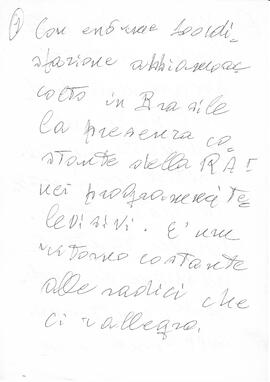 1
Con enorme soddi-
sfazione abbiamo ac
colto in Brasile
la presenza co-
stante della RAI
nei programmi te
levisivi. E' un
ritorno costante
alle radici che
ci rallegra.